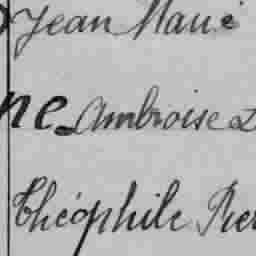 Jean Marie
ne Ambroise
Théophile